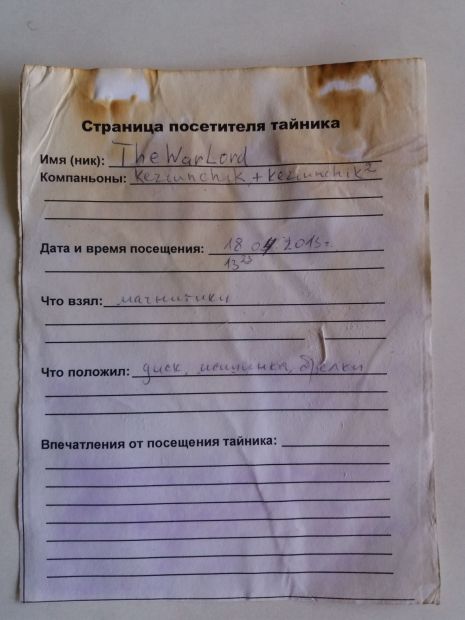 Страница посетителя тайника
Имя (ник): TheWarLord
Компаньоны: Kerzunchik + Kerzunchik²
Дата и время посещения: 18 04 2013г.
13²³
Что взял: магнитики
Что положил: диск, брелки
Впечатления от посещения тайника: